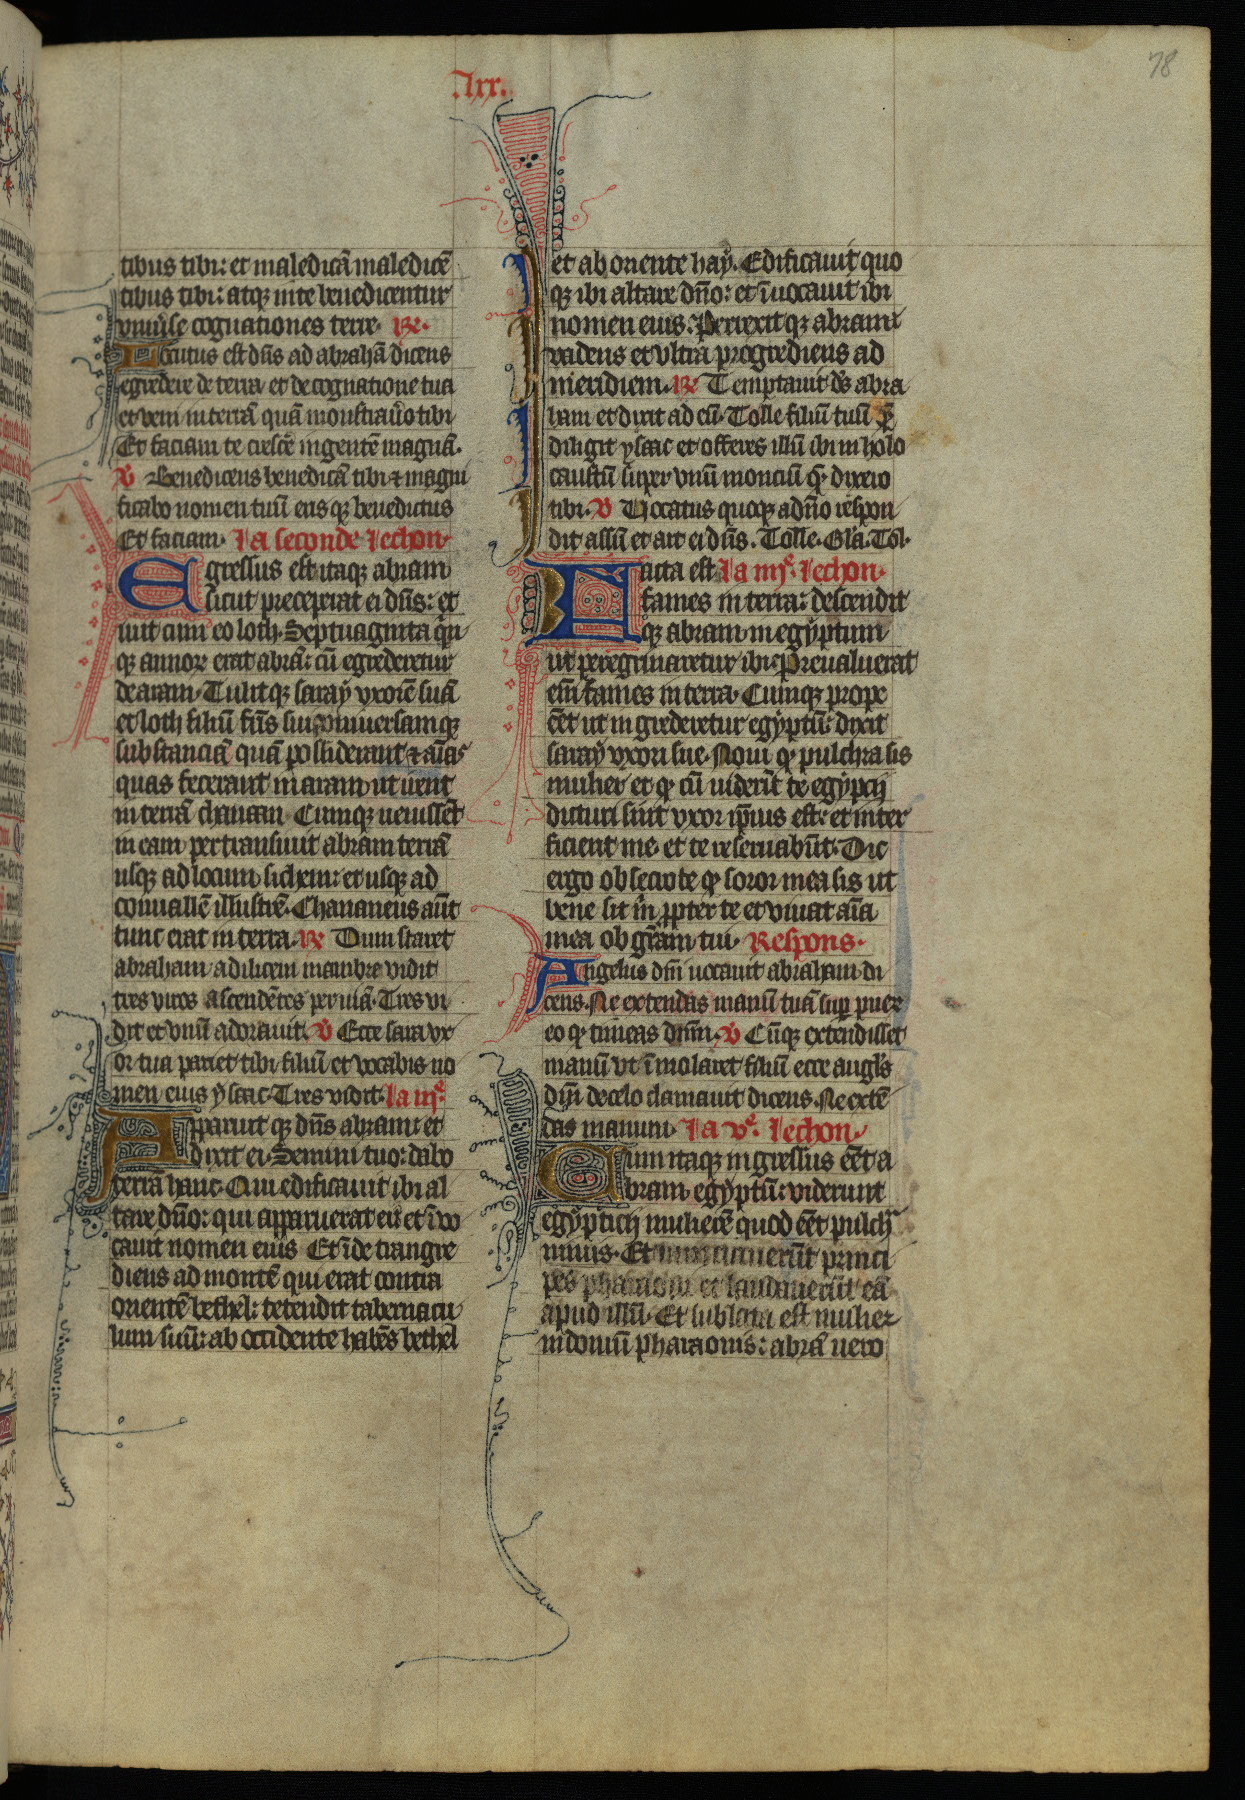 78
.lxx.
tibus tibi: et maledicā maledicē
tibus tibi: atqȝ in te benedicentur
vniu̾se cognationes terre. R̃e.
Locutus est dn̄s ad abrahā dicens
egredere de terra et de cognatione tua
et veni in terrā quā monstrau̾o tibi
Et faciam te cresce᷑ in gentē magnā.
V̄ Benedicens benedicā tibi ⁊ magni
ficabo nomen tuū eris qȝ benedictus
Et faciam. la seconde lechon.
Egressus est itaqȝ abram
sicut preceperat ei dn̄s: et
iuit cum eo loth. Septuaginta qīn
qȝ annoꝝ erat abrā: cū egrederetur
de aram. Tulitqȝ saray vxorē suā
et loth filiū fr̄is sui: vniuersamqȝ
substanciā quā possiderant ⁊ aīas
quas fecerant in aram: ut iīrent
in terrā chanaan. Cumqȝ uenissēt
in eam pertransiuit abram terrā
usqȝ ad locum sichem: et usqȝ ad
conuallē illustrē. Chananeus aūt
tunc erat in terra. R̃e Dum staret
abraham ad ilicem mambre vidit
tres viros ascendētes per uiā. Tres vi
dit et vnū adorauit. V̄ Ecce sara vx
or tua pariet tibi filiū et vocabis no
men eius ysaac. Tres vidit. la iijͤ.
Apparuit qȝ dn̄s abram: et
dixit ei. Semini tuo: dabo
terrā hanc. Qui edificauit ibi al
tare dn̄o: qui apparuerat ei: et īuo
cauit nomen eius Et īde trangre
diens ad montē qui erat contra
orientē bethel: tetendit tabernacu
lum suū: ab occidente habēs bethel
et ab oriente hay. Edificauit quo
qȝ ibi altare dn̄o: et īuocauit ibi
nomen eius. Perrexit qȝ abram
vadens et vltra progrediens ad
meridiem. R̃e Temptauit dš abra
ham et dixit ad eū. Tolle filiū tuū ꝙ̄
diligit ysaac et offeres illū ibi in holo
caustū super vnū monciū ꝙ dixero
tibi. V̄ Uocatus quoqȝ a dn̄o respon
dit assū et ait ei dn̄s. Tolle. Gl̄a. Tol.
Facta est la iiijͤ. lechon.
fames in terra: descendit
qȝ abram in egyptum
ut peregrinaretur ibi: Preualuerat
em̄ fames in terra. Cumqȝ prope
ēēt ut ingrederetur egyptū: dixit
saray vxori sue. Noui ꝙ pulchra sis
mulier et ꝙ cū uiderīt te egypcij
dicturi sint vxor ip̄ius est: et inter
ficient me. et te reseruabūt. Dic
ergo obsecro te ꝙ soror mea sis ut
bene sit m̄ ꝓpter te et viuat aīa
mea ob gr̄am tui. Respons.
Angelus dn̄i uocauit abraham di
cens. Ne extendas manū tuā suꝑ puer
eo ꝙ timeas dn̄m. V̄ Cūqȝ extendisset
manū vt īmolaret filiū ecce angl̄s
dn̄i de celo clamauit dicens. Ne extē
das manum. la vͤ. lechon.
Cum itaqȝ ingressus ēēt a
bram egyptū: viderunt
egyptich mulierē quod ēēt pulch
nimis. Et nunciauerūt princi
pes pharaoni et laudauerūt eā
apud illū. Et sublata est mulier
in domū pharaonis: abrā uero